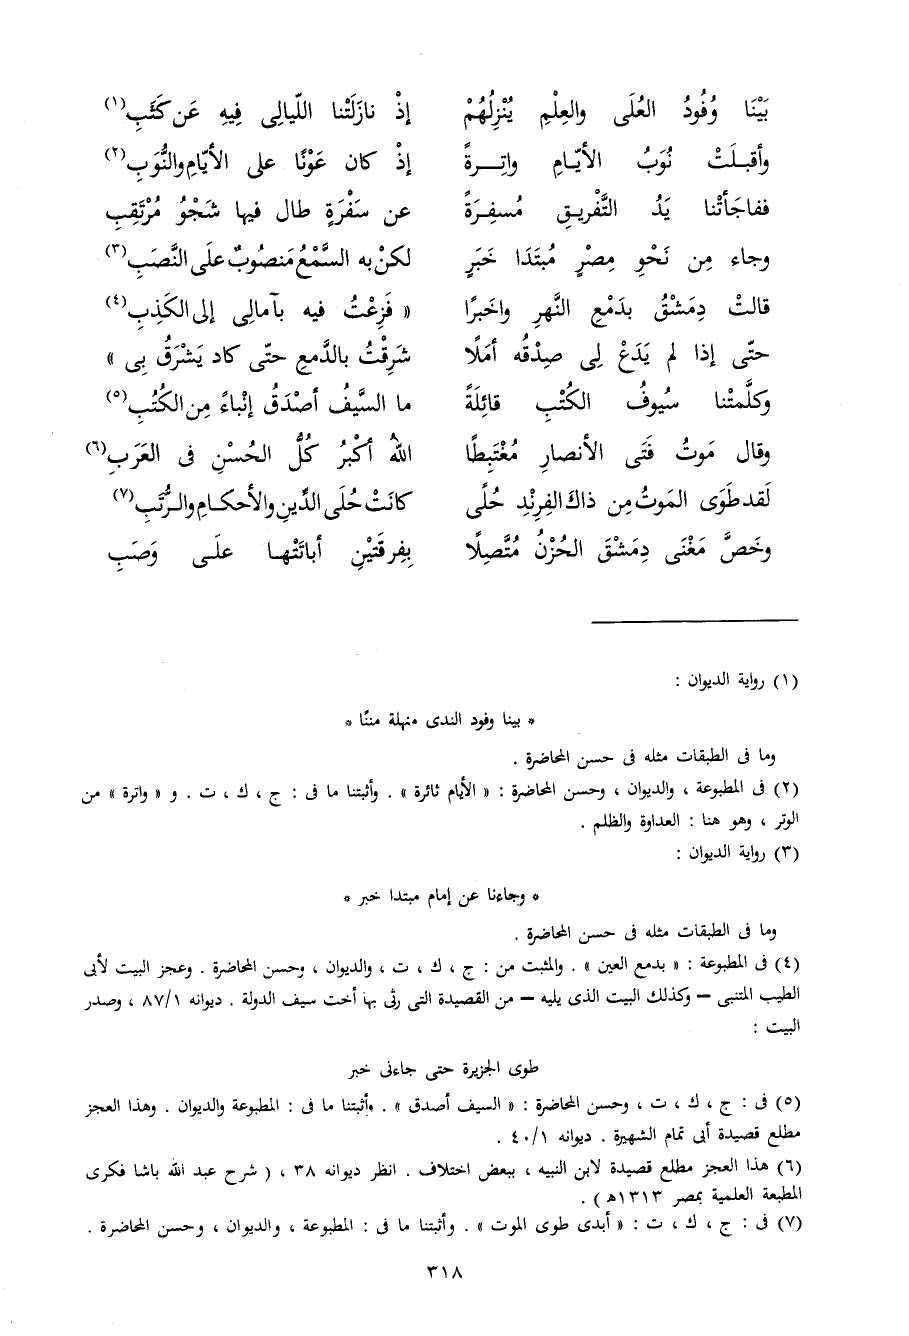 بَيْنَا وُفُودُ العُلَى والعِلْمِ يُنْزِلُهُمْ إذْ نازَلَتْنا اللّيالِى فِيهِ عَن كَثَبِ(١)
وأقبلَتْ نُوَبُ الأيّامِ واتِرةً إذْ كان عَوْنًا على الأيّامِ والنُّوَبِ(٢)
ففاجَأَتْنا يَدُ التَّفْرِيقِ مُسفِرَةً عن سَفْرَةٍ طال فيها شَجْوُ مُرْتَقِبِ
وجاء مِن نَحْوِ مِصْرٍ مُبتَدَا خَبَرٍ لكنْ به السَّمْعُ مَنصُوبٌ علَى النَّصَبِ(٣)
قالتْ دِمَشْقُ بدَمْعِ النَّهرِ واخَبرًا « فَزِعْتُ فيه بآمالِى إلى الكَذِبِ(٤)
حتّى إذا لم يَدَعْ لِى صِدْقُه أمَلًا شَرِقْتُ بالدَّمعِ حتّى كاد يَشْرَقُ بِى »
وكلَّمتْنا سُيوفُ الكُتْبِ قائِلَةً ما السَّيفُ أصْدَقُ إنْباءً مِن الكُتُبِ(٥)
وقال مَوتُ فَتَى الأنصارِ مُغْتَبِطًا اللهُ أكْبَرُ كُلُّ الحُسْنِ فى العَرَبِ(٦)
لَقد طَوَى المَوتُ مِن ذاكَ الفِرِنْدِ حُلًى كانَتْ حُلَى الدِّينِ والأحكامِ والرُّتَبِ(٧)
وخَصَّ مَغْنَى دِمَشْقَ الحُزْنُ مُتَّصِلًا بفِرقَتَيْنِ أباتَتْها علَى وَصَبِ
(١) رواية الديوان :
* بينا وفود الندى منهلة مننًا *
وما فى الطبقات مثله فى حسن المحاضرة .
(٢) فى المطبوعة ، والديوان ، وحسن المحاضرة : « الأيام ثائرة » . وأثبتنا ما فى : ج ، ك ، ت . و « واترة » من
الوتر ، وهو هنا : العداوة والظلم .
(٣) رواية الديوان :
* وجاءنا عن إمام مبتدا خبر *
وما فى الطبقات مثله فى حسن المحاضرة .
(٤) فى المطبوعة : « بدمع العين » . والمثبت من : ج ، ك ، ت ، والديوان ، وحسن المحاضرة . وعجز البيت لأبى
الطيب المتنبى – وكذلك البيت الذى يليه – من القصيدة التى رثى بها أخت سيف الدولة . ديوانه ٨٧/١ ، وصدر
البيت :
طوى الجزيرة حتى جاءنى خبر
(٥) فى : ج ، ك ، ت ، وحسن المحاضرة : « السيف أصدق » . وأثبتنا ما فى : المطبوعة والديوان . وهذا العجز
مطلع قصيدة أبى تمام الشهيرة . ديوانه ٤٠/١ .
(٦) هذا العجز مطلع قصيدة لابن النبيه ، ببعض اختلاف . انظر ديوانه ٣٨ ، ( شرح عبد الله باشا فكرى
المطبعة العلمية بمصر ١٣١٣هـ ) .
(٧) فى : ج ، ك ، ت : « أبدى طوى الموت » . وأثبتنا ما فى : المطبوعة ، والديوان ، وحسن المحاضرة .
٣١٨